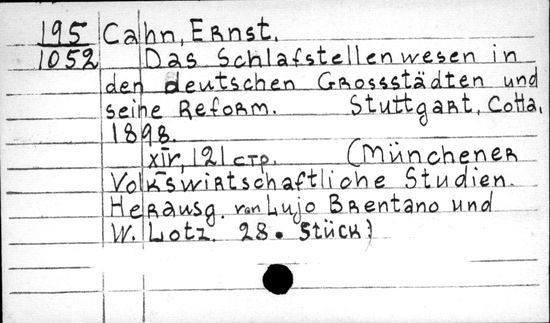 195 Cahn, Ernst.
1052 Das Schlafstellenwesen in
den deutschen Grossstädten und
seine Reform. Stuttgart, Cotta,
1898.
XIV, 121 стр. (Münchener
Volkswirtschaftliche Studien.
Herausg. von Lujo Brentano und
W. Lotz. 28. Stück)